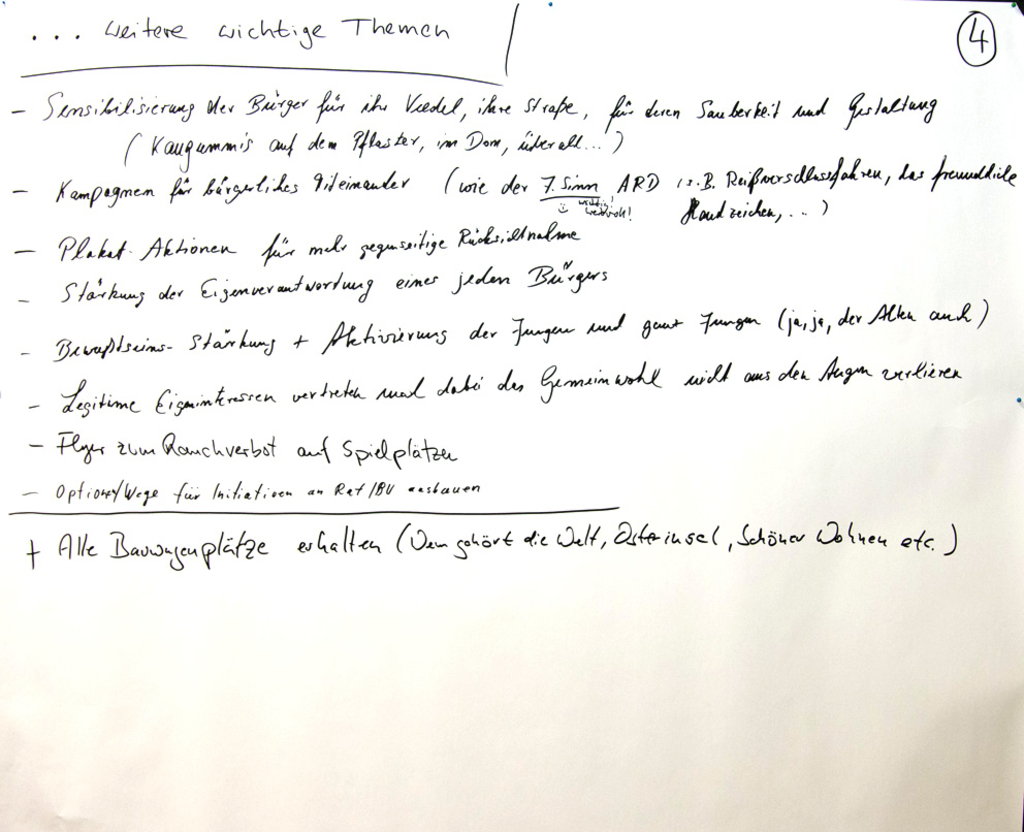 ... weitere wichtige Themen
4
- Sensibilisierung der Bürger für ihr Veedel, ihre Straße, für deren Sauberkeit und Gestaltung
(Kaugummis auf dem Pflaster, im Dom, überall...)
- Kampagnen für bürgerliches Miteinander (wie der 7. Sinn ARD z.B. Reißverschlussfahren, das freundliche
Handzeichen, ...)
- Plakat-Aktionen für mehr gegenseitige Rücksichtnahme
- Stärkung der Eigenverantwortung eines jeden Bürgers
- Bewußtseins-Stärkung + Aktivierung der Jungen und ganz Jungen (ja, ja, der Alten auch)
- Legitime Eigeninteressen vertreten und dabei das Gemeinwohl nicht aus den Augen verlieren
- Flyer zum Rauchverbot auf Spielplätzen
- Optionen/Wege für Initiativen an Rat/BV ausbauen
+ Alle Bauwagenplätze erhalten (Wem gehört die Welt, Osterinsel, Schöner Wohnen etc.)